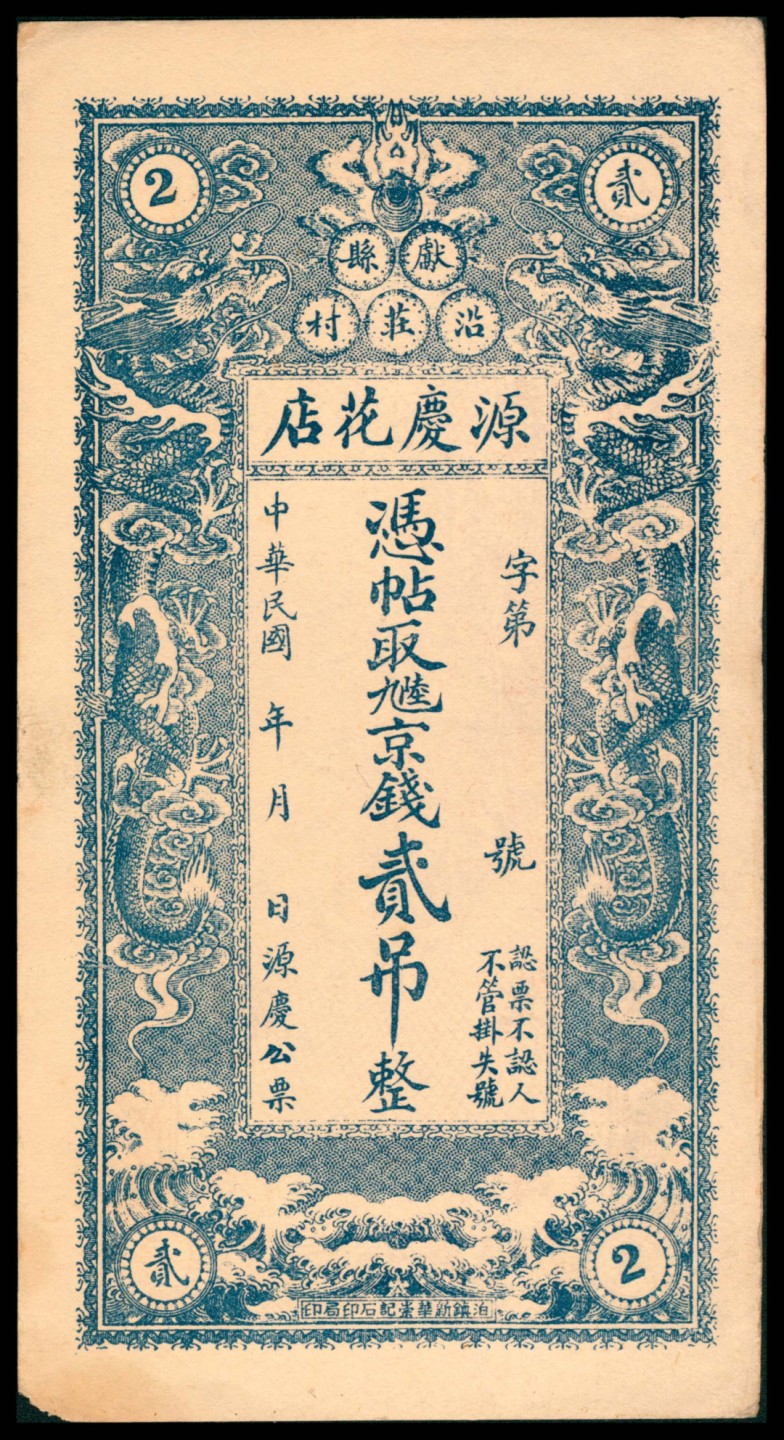 2
貳
獻縣
沿莊村
源慶花店
字第
號
認票不認人
不管掛失號
憑帖取九陸京錢貳吊整
中華民國 年 月 日源慶公票
貳
2
泊鎮新華
記石印局印